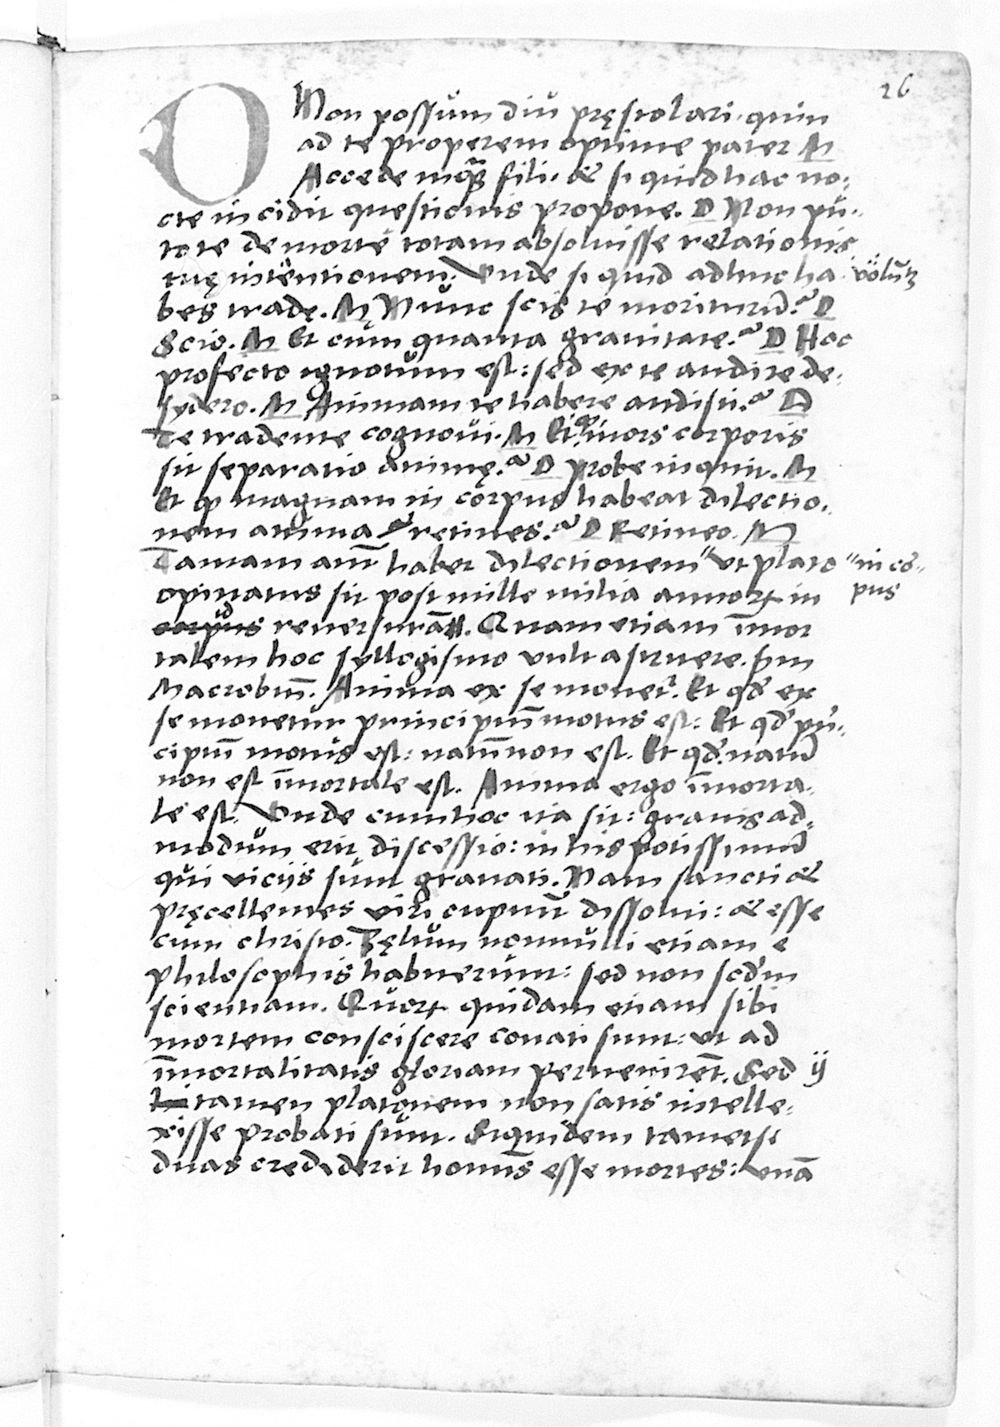 26
D Non possum diu pręstolari. quin
ad te properem optime pater M
Accede inquam fili. & si quid hac no-
cte incidit questionis propone. D Non pu-
to te de morte totam absoluisse relationis
tuę intentionem. Unde si quid adhuc ha
bes tradę. M Nunc scis te moriturū? D
Scio. M Et cum quanta grauitate? D Hoc
profecto ignotum est: sed ex te audire de-
sydero. M Animam te habere audisti? D
Te tradente cognoui. M Et mors corporis
sit separatio animę? D probe inquit. M
Et ꝙ magnam in corpus habeat dilectio-
nem anima & retines? D Retineo. M
Tantam aūt habet dilectionem " ut plato " in cor-
pus
opinatus sit post mille milia annoꝝ in
id
corpus reuersurā. Quam etiam īmor
talem hoc syllogismo vult astruere. scđm
Macrobiū. Anima ex se mouet̃. Et qđ ex
se mouetur principiū motus est: Et qđ prī-
cipiū motus est: natū non est. Et qđ natū
non est īmortale est. Anima ergo īmorta-
le est. Unde cum hoc ita sit: grauis ad-
modum erit discessio: in his potissimū
qui vicijs sunt grauati. Nam sancti &
pręcellentes viri cupiūt dissolui: & esse
cum christo. Zęlum nonnulli etiam e
philosophis habuerunt: sed non scđm
scientiam. Quoꝝ quidam etiam sibi
mortem consciscere conati sunt: ut ad
īmortalitatis gloriam peruenirēt. Sed ij
tamen platonem non satis intelle-
xisse probati sunt. Siquidem tametsi
duas crediderit hominis esse mortes: vnā